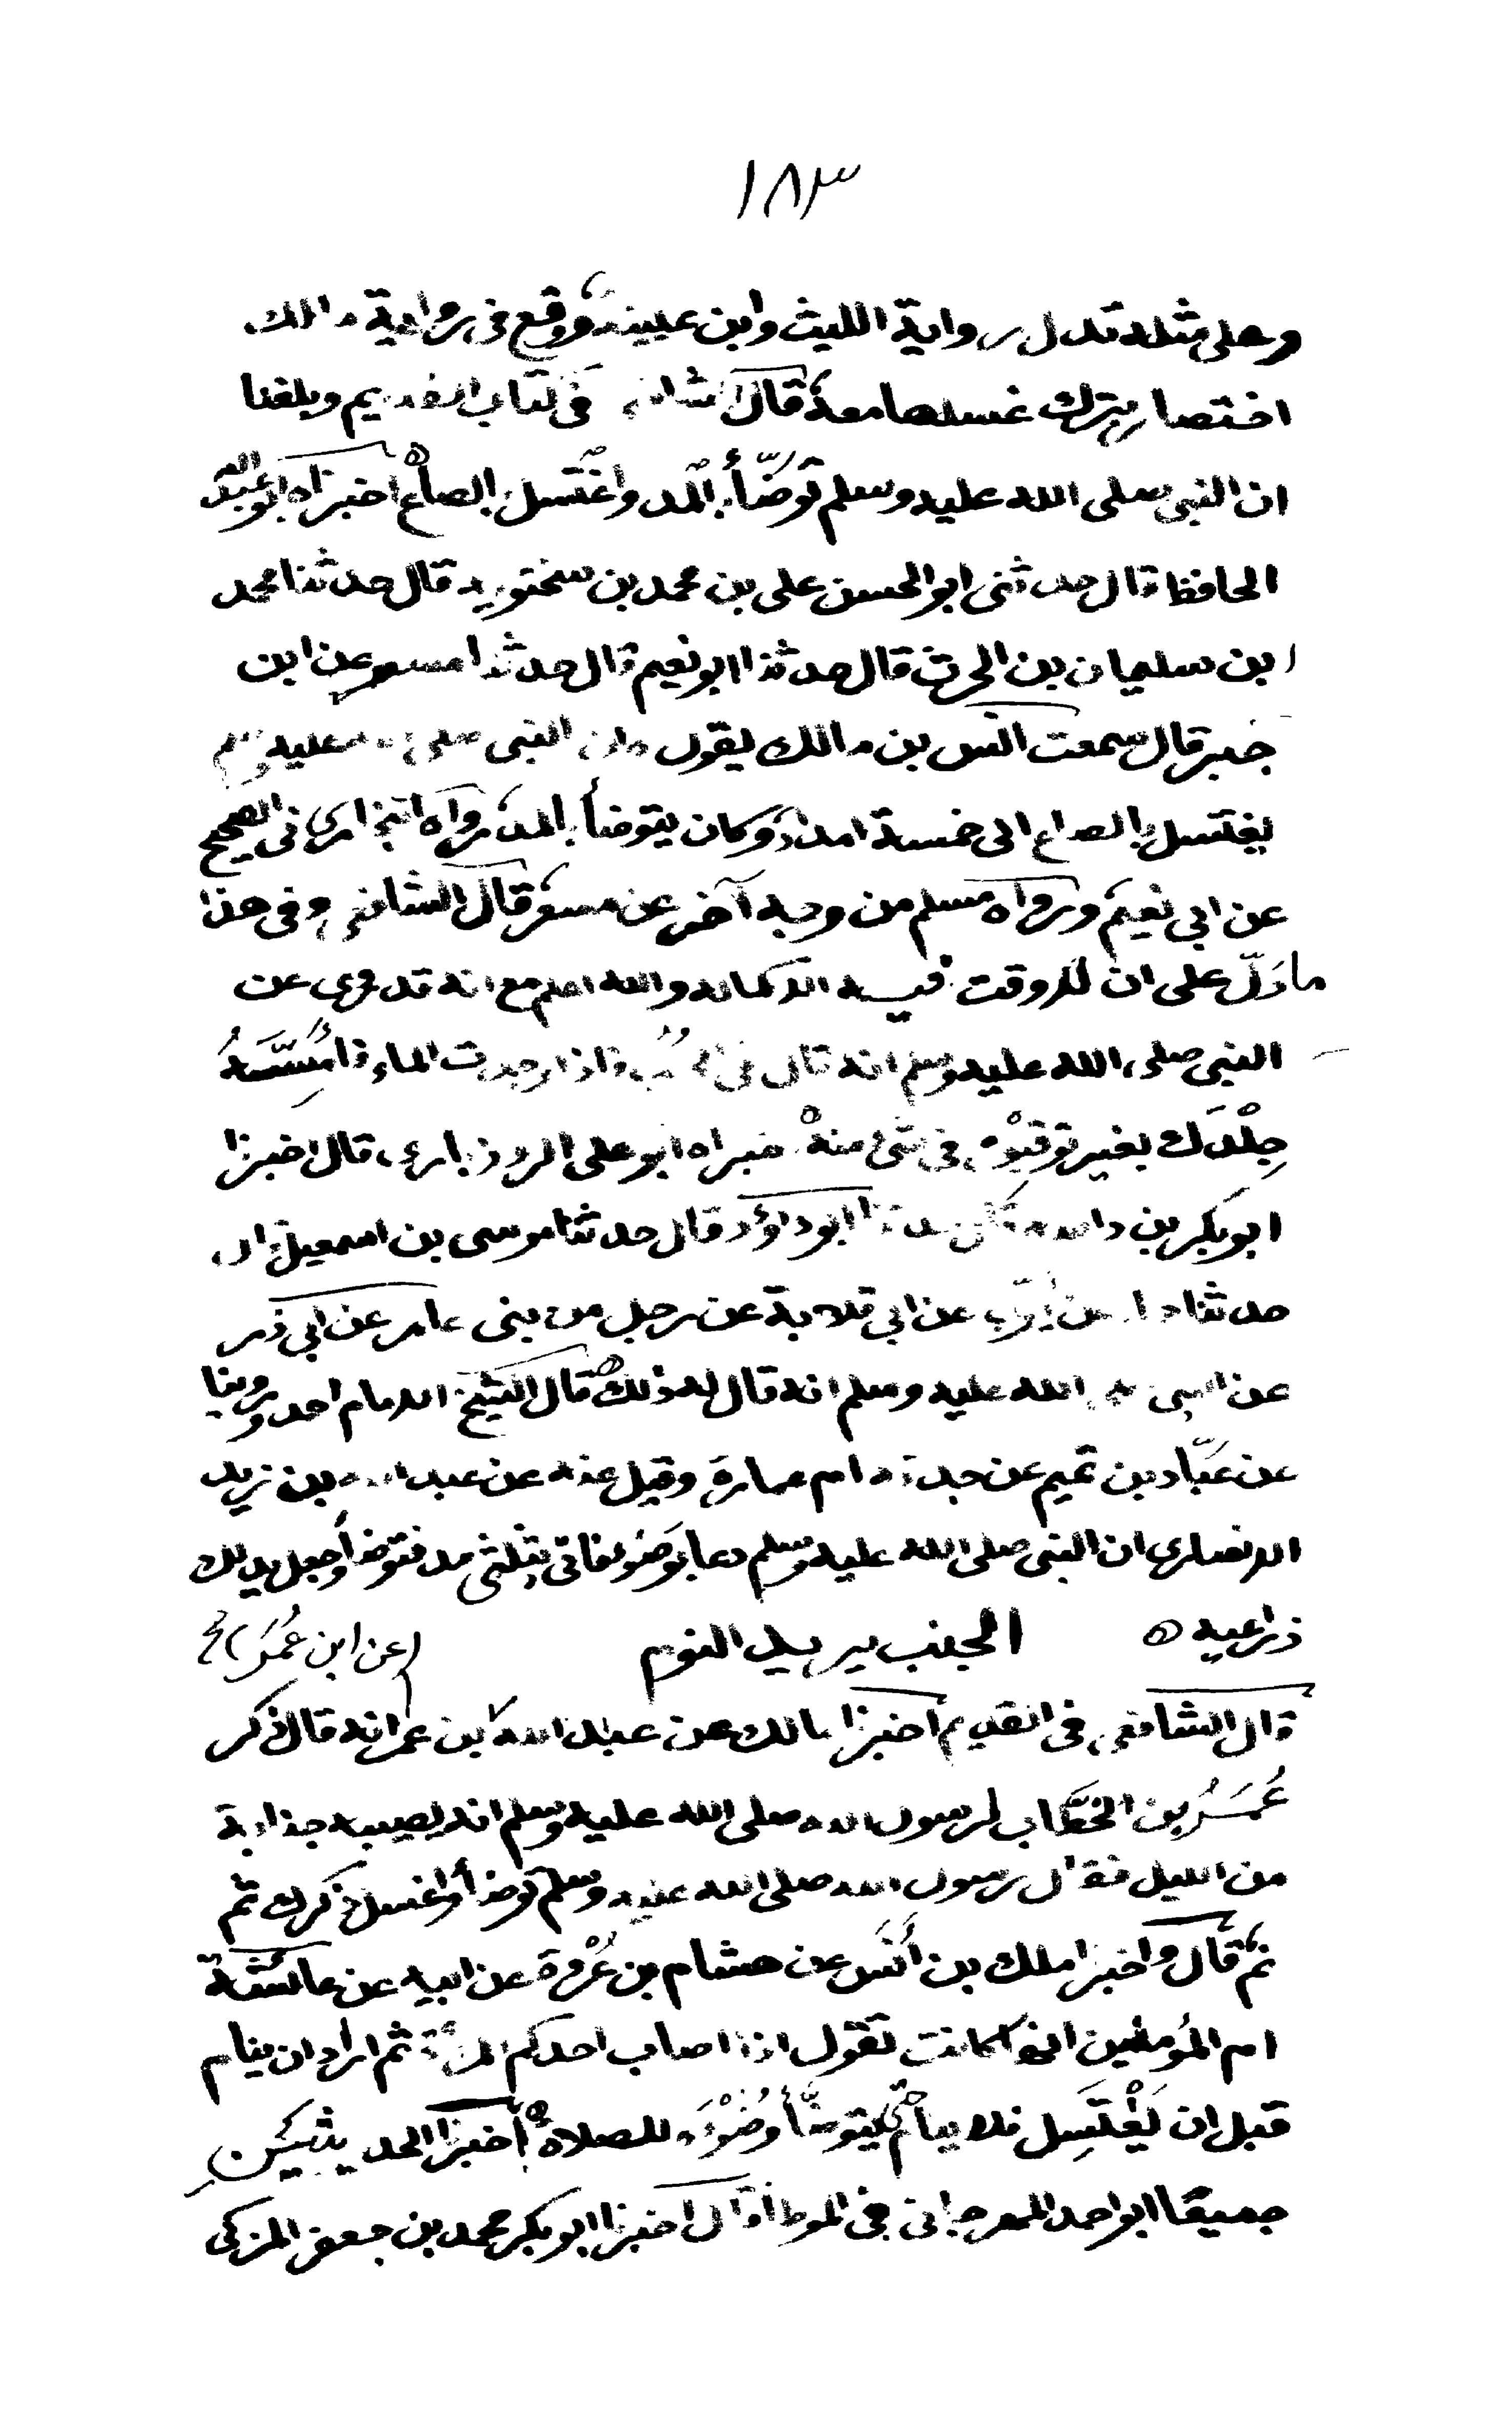 ١٨٣
وعلى مثله تدل رواية الليث وابن عيينة ووقع فى رواية مالك
اختصار بترك غسلها معه قال الشافعى فى كتاب القديم وبلغنا
ان النبى صلى الله عليه وسلم تَوَضّأ بالمد واغتسل بالصاع اخبرناه ابو عبد الله
الحافظ قال حدثنى ابو الحسن على بن محمد بن سختويه قال حدثنا محمد
ابن سليمان بن الحرث قال حدثنا ابو نعيم قال حدثنا مسعر عن ابن
جبر قال سمعت انس بن مالك يقول كان النبى صلى الله عليه وسلم
يغتسل بالصاع الى خمسة امداد وكان يتوضأ بالمد رواه البخارى فى الصحيح
عن ابي نعيم ورواه مسلم من وجه آخر عن مسعر قال الشافعى وفى هذا
ما دَلّ على ان لا وقت فيه الا كماله والله اعلم مع انه قد روى عن
النبى صلى الله عليه وسلم انه قال فى الجنب فاذا وجدت الماء فامْسَّهُ
جِلْدَك بغير توقيت فى شئ منه اخبرناه ابو على الروذبارى قال اخبرنا
ابو بكر بن داسه قال حدثنا ابو داؤد قال حدثنا موسى بن اسمعيل قال
حدثنا حماد عن ايوب عن ابي قلابة عن رجل من بنى عامر عن ابي ذر
عن النبى صلى الله عليه وسلم انه قال له ذلك قال الشيخ الامام احمد وروينا
عن عَبّاد بن تميم عن جدته ام عمارة وقيل عنه عن عبد الله بن زيد
الانصارى ان النبى صلى الله عليه وسلم دعا بوَضُوء فاتى بثلثى مد فتوضأ وجعل يدلك
ذراعيه ه الجنب يريد النوم (عن ابن عُمَر) ح
قال الشافعى فى القديم اخبرنا مالك عن عبد الله بن عمر انه قال ذكر
عُمَرُ بن الخطَّاب لرسول الله صلى الله عليه وسلم انه يصيبه جنابة
من الليل فقال رسول الله صلى الله عليه وسلم توضأ واغسل ذكرك ثم
نم قال واخبرنا ملك بن أنَس عن هشام بن عُرْوَة عن ابيه عن عائشة
ام المؤمنين انها كانت تقول اذا اصاب احدكم المرأة ثم اراد ان ينام
قبل ان يَغْتَسِل فلا ينام حتى يتوضّأ وُضُوْءَه للصلاة ه أخبرنا الحديثين
جميعًا ابو احمد المهرجانى فى الموطأ قال اخبرنا ابو بكر محمد بن جعفر المزكى